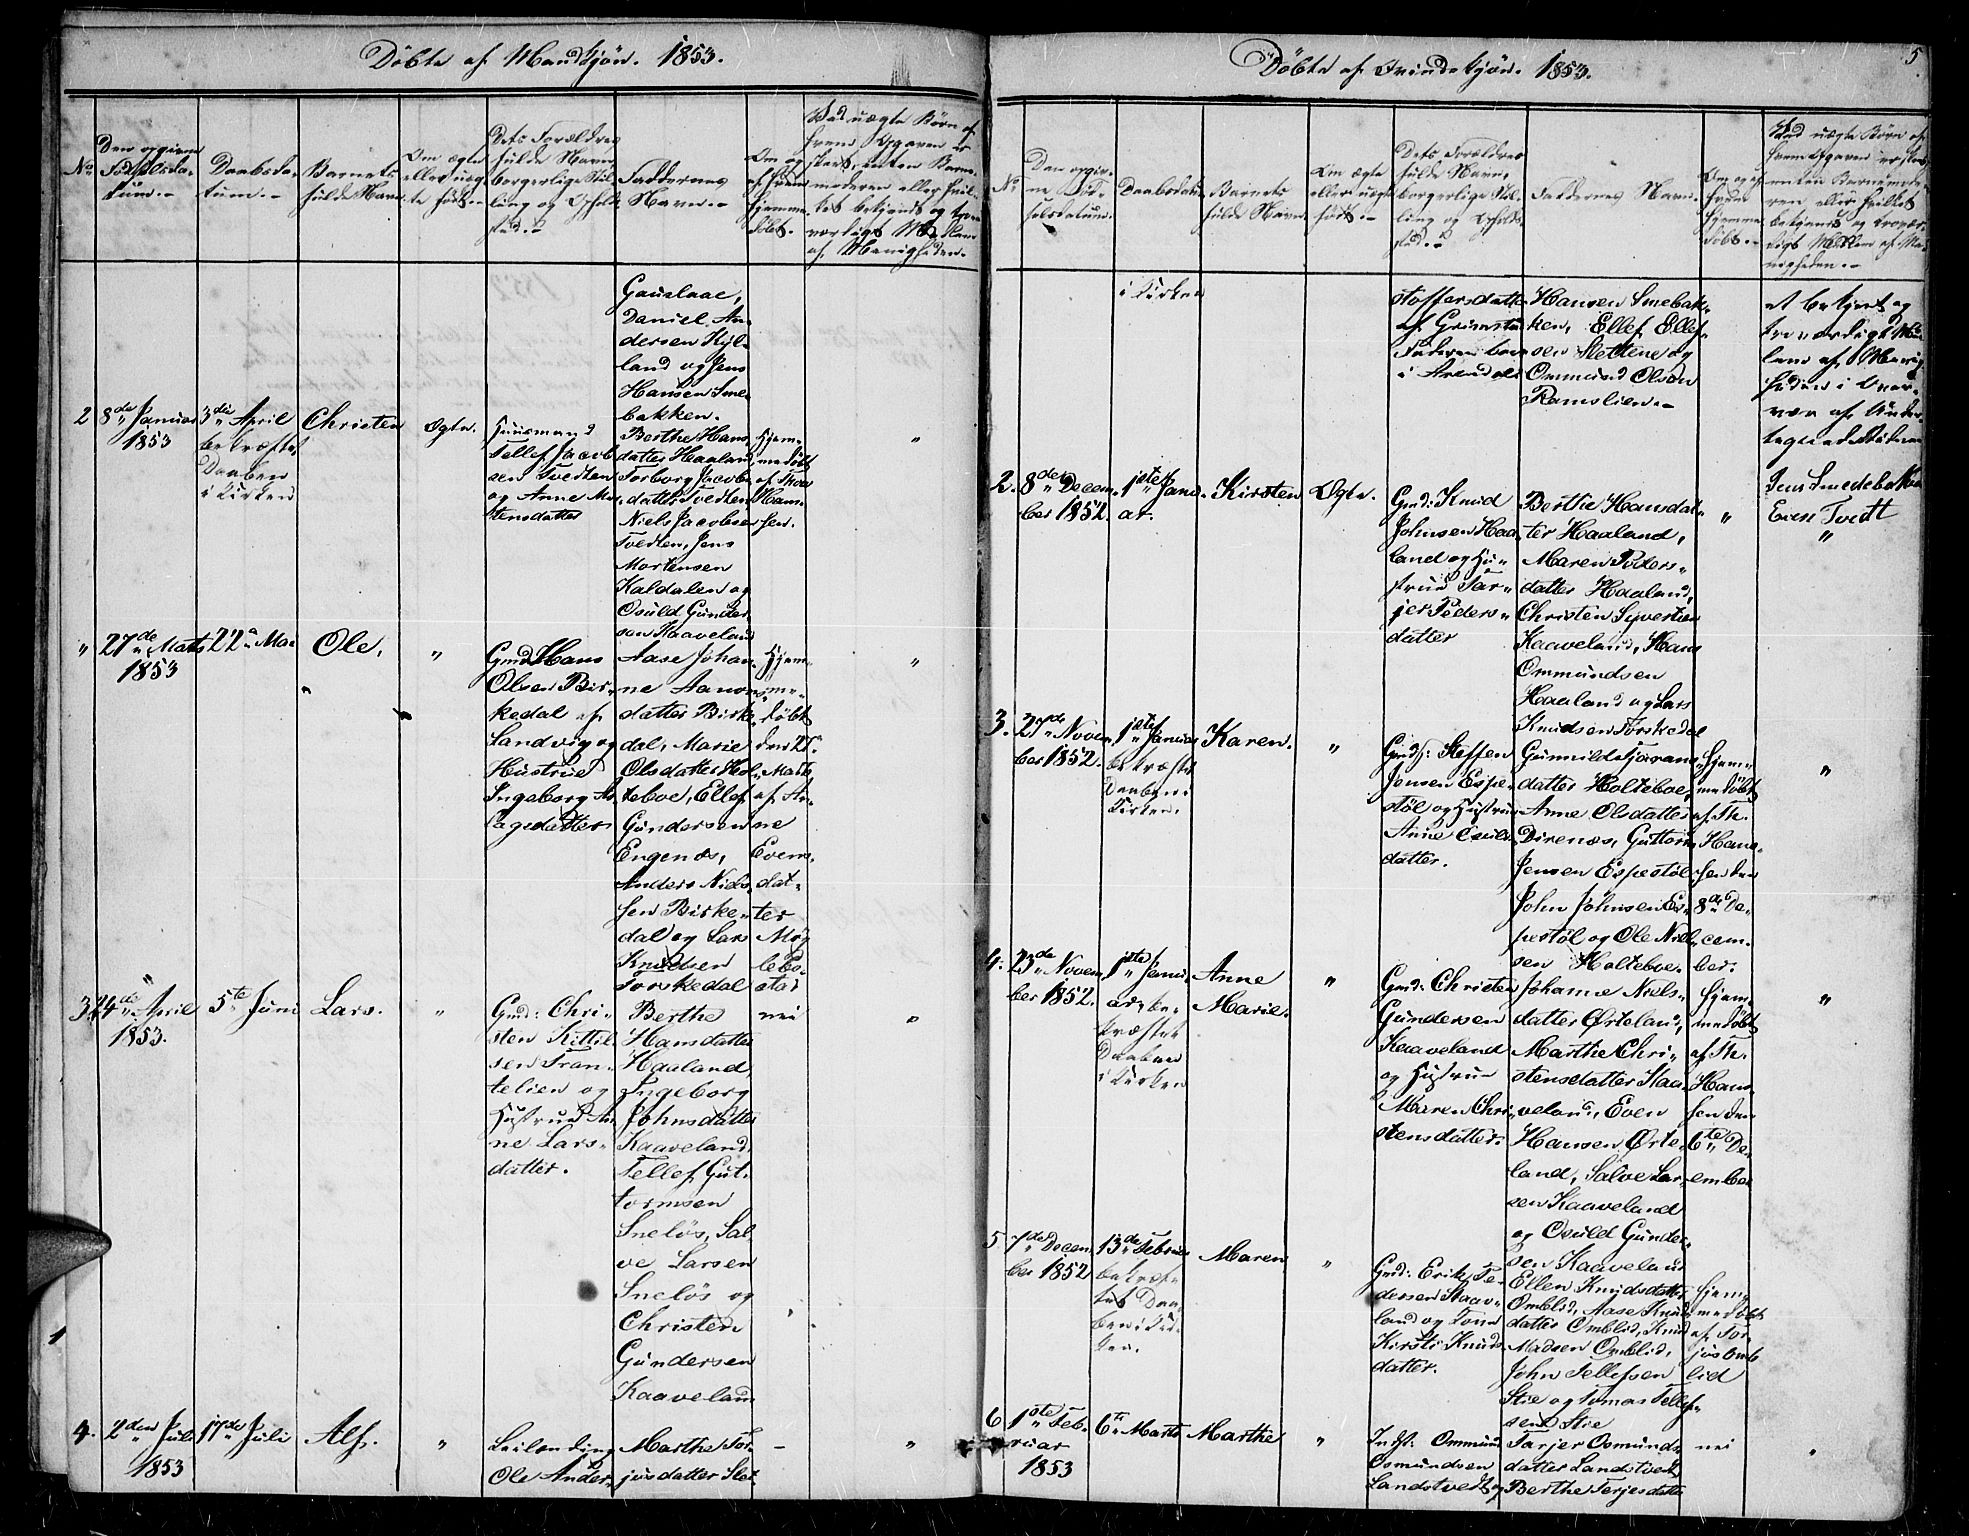 Døbte af Mandkjøn. 1853.
No
Den opgivne Fødselsdatum.
Daabsdatum.
Barnets fulde Navn
Om ægte eller uægte født.
Dets Forældres fulde Navn, borgerlige Stilling og Opholdssted.
Faddernes Navn.
Om og af hvem hjemmedøbt.
Gauslaae,
Daniel An-
dersen Kyl-
land og Jens
Hansen Sme-
bakken.
2
8de Januar
1853
3die April
bekræftet
Daaben
i Kirken
Christen
Ægte.
Huusmand
Tellef Jacob-
sen Tvedten
og Anne Mor-
tensdatter
Berthe Hans-
datter Haaland,
Torborg Jacobs-
datter Tvedten,
Niels Jacobsen
Tvedten, Jens
Mortensen
Kaldalen og
Osuld Gunder-
sen Kaaveland
Hjem-
medøbt
af
Han-
sen.
"
"
27de Marts
1853
22de Mai
Ole,
"
Gmd: Hans
Olsen Bir-
kedal af
Landvig og
Hustrue
Ingeborg As-
lagsdatter
Aase Johan-
ne Aanons-
datter Birke-
dal, Marie
Olsdatter Hol-
teboe, Ellef
Gundersen
Engenæs,
Anders Niels-
sen Birke-
dal og Lars
Knudsen
Torskedal
Hjem-
me-
døbt
den 27de
Marts
af An-
ne
Evens-
dat-
ter
Møg-
lebo-
stad
"
3
24de April
1853.
5te Juni
Lars.
"
Gmd: Chri-
sten Kittil-
sen Tran-
telien og
Hustrue An-
ne Lars-
datter.
Berthe
Hansdatter
Haaland,
Ingeborg
Johnsdatter
Kaaveland,
Tellef Gut-
tormsen
Sneløs, Sal-
ve Larsen
Sneløs og
Christen
Gundersen
Kaaveland
nei
"
4.
2den Juli
1853
17de Juli
Alf.
"
Leilending
Ole Ander-
Marthe Tor-
jusdatter Slet-
-
"
Døbte af Qvindekjøn. 1853.
5
No
Den opgivne Fødselsdatum.
Daabsdatum
Barnets fulde Navn.
Om ægte eller uægte født.
Dets Forældres fulde Navn, borgerlige Stilling og Opholdssted.
Faddernes Navn.
Om og af hvem hjemmedøbt.
i Kirken
stoffersdatter
af Grimstad
Faderen boer
i Arendal
Hansen Smebak-
ken, Ellef Ellef-
sen Slettene og
Ommund Olsen
Ramslien.
et bekjent og
troværdigt Med-
lem af Menig-
heden i Over-
vær af Under-
tegnede
Jens Smedebakken
Even Tvedt
2.
8de Decem-
ber 1852.
1ste Janu-
ar.
Kirsten
Ægte.
Gmd: Knud
Johnsen Haa-
land og Hu-
strue Tar-
jer Peders-
datter
Berthe Hansdat-
ter Haaland,
Maren Peders-
datter Haaland,
Christen Syvertsen
Kaaveland, Hans
Ommundsen
Haaland og Lars
Knudsen Torskedal
"
"
3.
27de Novem-
ber 1852.
1ste Januar
bekræftet
Daaben i
Kirken.
Karen.
"
Gmd: Steffen
Jensen Espe-
støl og Hustrue
Anne
datter.
Gunnild
datter Holteboe,
Anne Olsdatter
Direnæs, Guttorm
Jensen Espestøl
John Johnsen Es-
pestøl og Ole Niel-
sen Holteboe.
Hjem-
medøbt
af Th.
Han-
sen den
8de De-
cem-
ber.
"
4.
23de Novem-
ber 1852.
1ste Janu-
ar, be-
kræftet
Daaben
i Kirken
Anne
Marie.
"
Gmd: Christen
Gundersen
Kaaveland
og Hustrue
Maren Chri-
stensdatter.
Johanne Niels-
datter Ørteland,
Marthe Chri-
stensdatter Kaa-
veland, Even
Hansen Ørte-
land, Salve Lar-
sen Kaaveland
og Osuld Gunder-
sen Kaaveland
Hjem-
medøbt
af Th.
Han-
sen den
6te De-
cember
"
5
7de Decem-
ber 1852
13de Februar
bekræf-
tet Daa-
ben i Kir-
ken.
Maren
"
Gmd: Erik Pe-
dersen Kaave-
land og Kone
Kirsti Knuds-
datter.
Ellen Knudsdatter
Omblid, Aase Knuds-
datter Omblid, Knud
Madsen Omblid,
John Tellefsen
Stie og Tomas Tellef-
sen Stie
Hjem-
medøbt
af Tor-
jus Omb-
lid
6
1ste Feb-
ruar
1853
6te Marts
Marthe
"
Indst: Ommund
Osmundsen
Landstvedt og
Tarjer Osmunds-
datter Landstvedt,
Berthe Terjesdatter
nei
"